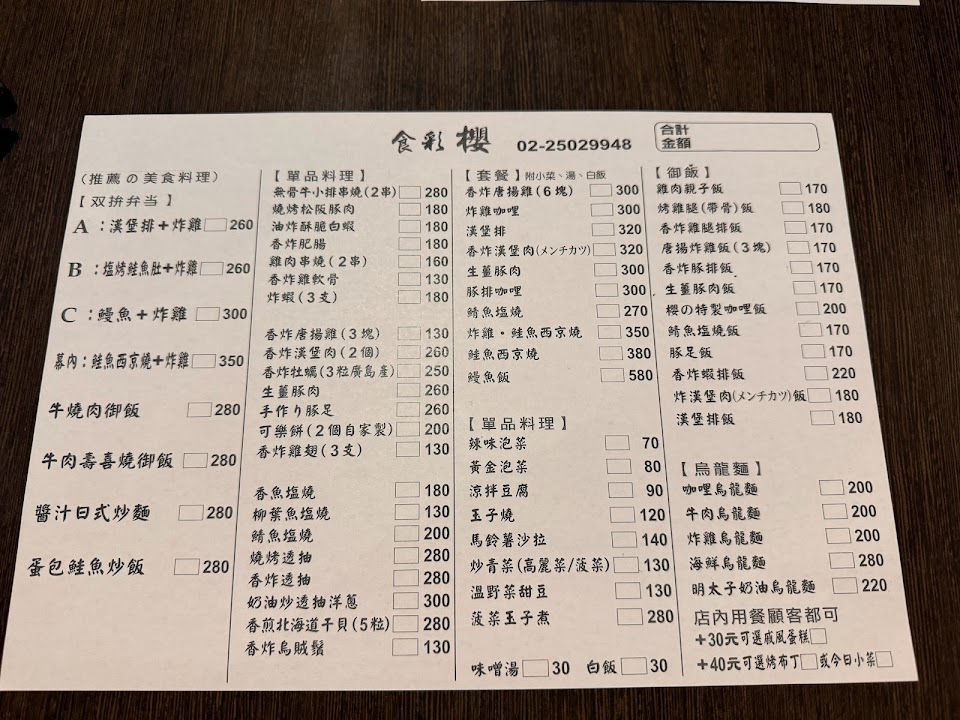 食彩 櫻 02-25029948
合計
金額
(推薦の美食料理)
【双拚弁当】
A：漢堡排＋炸雞 260
B：塩烤鮭魚肚＋炸雞 260
C：鰻魚＋炸雞 300
幕內：鮭魚西京燒＋炸雞 350
牛燒肉御飯 280
牛肉壽喜燒御飯 280
醬汁日式炒麵 280
蛋包鮭魚炒飯 280
【單品料理】
無骨牛小排串燒(2串) 280
燒烤松阪豚肉 180
油炸酥脆白蝦 180
香炸肥腸 180
雞肉串燒(2串) 160
香炸雞軟骨 130
炸蝦(3支) 180
香炸唐揚雞(3塊) 130
香炸漢堡肉(2個) 260
香炸牡蠣(3粒廣島産) 250
生薑豚肉 260
手作り豚足 260
可樂餅(2個自家製) 200
香炸雞翅(3支) 130
香魚塩燒 180
柳葉魚塩燒 130
鯖魚塩燒 200
燒烤透抽 280
香炸透抽 280
奶油炒透抽洋蔥 300
香煎北海道干貝(5粒) 280
香炸烏賊鬚 130
【套餐】附小菜、湯、白飯
香炸唐揚雞(6塊) 300
炸雞咖哩 300
漢堡排 320
香炸漢堡肉(メンチカツ) 320
生薑豚肉 300
豚排咖哩 300
鯖魚塩燒 270
炸雞・鮭魚西京燒 350
鮭魚西京燒 380
鰻魚飯 580
【單品料理】
辣味泡菜 70
黃金泡菜 80
涼拌豆腐 90
玉子燒 120
馬鈴薯沙拉 140
炒青菜(高麗菜/菠菜) 130
溫野菜甜豆 130
菠菜玉子煮 280
味噌湯 30 白飯 30
【御飯】
雞肉親子飯 170
烤雞腿(帶骨)飯 180
香炸雞腿排飯 170
唐揚炸雞飯(3塊) 170
香炸豚排飯 170
生薑豚肉飯 170
櫻の特製咖哩飯 200
鯖魚塩燒飯 170
豚足飯 170
香炸蝦排飯 220
炸漢堡肉(メンチカツ)飯 180
漢堡排飯 180
【烏龍麵】
咖哩烏龍麵 200
牛肉烏龍麵 200
炸雞烏龍麵 200
海鮮烏龍麵 280
明太子奶油烏龍麵 220
店內用餐顧客都可
＋30元可選戚風蛋糕
＋40元可選烤布丁 或今日小菜